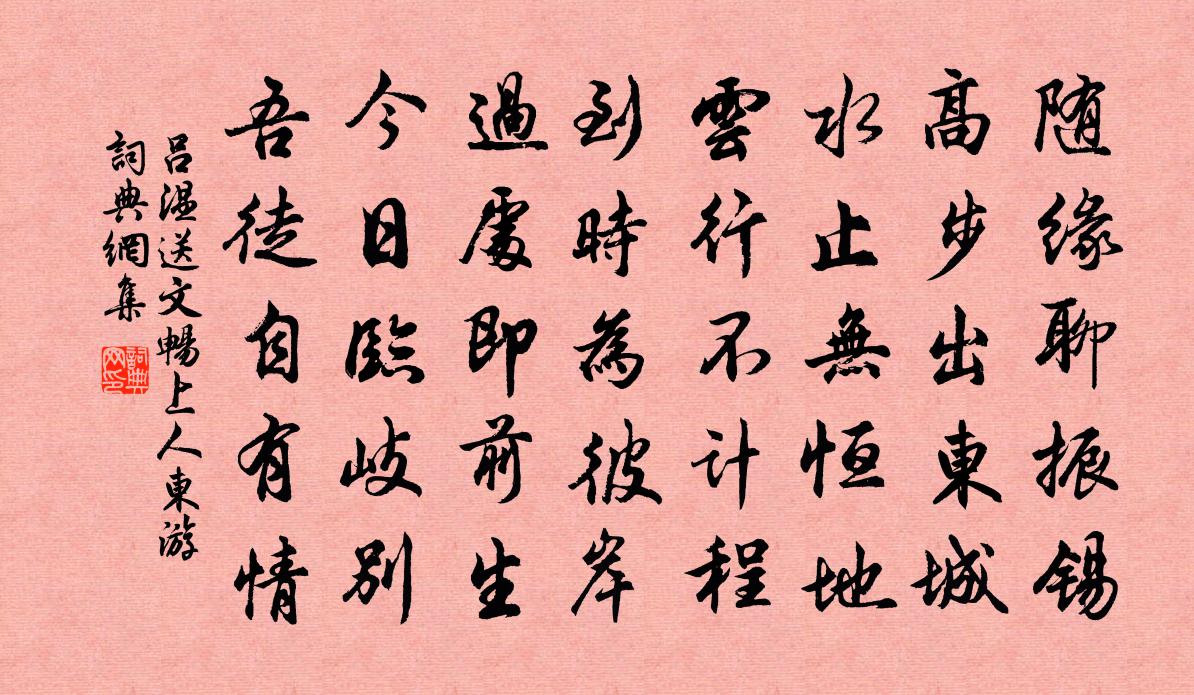 随缘聊振锡
高步出東城
水止無恒地
雲行不计程
到時為彼岸
過處即前生
今日臨岐别
吾徒自有情
吕温送文暢上人東游
詞典網集
詞典网印